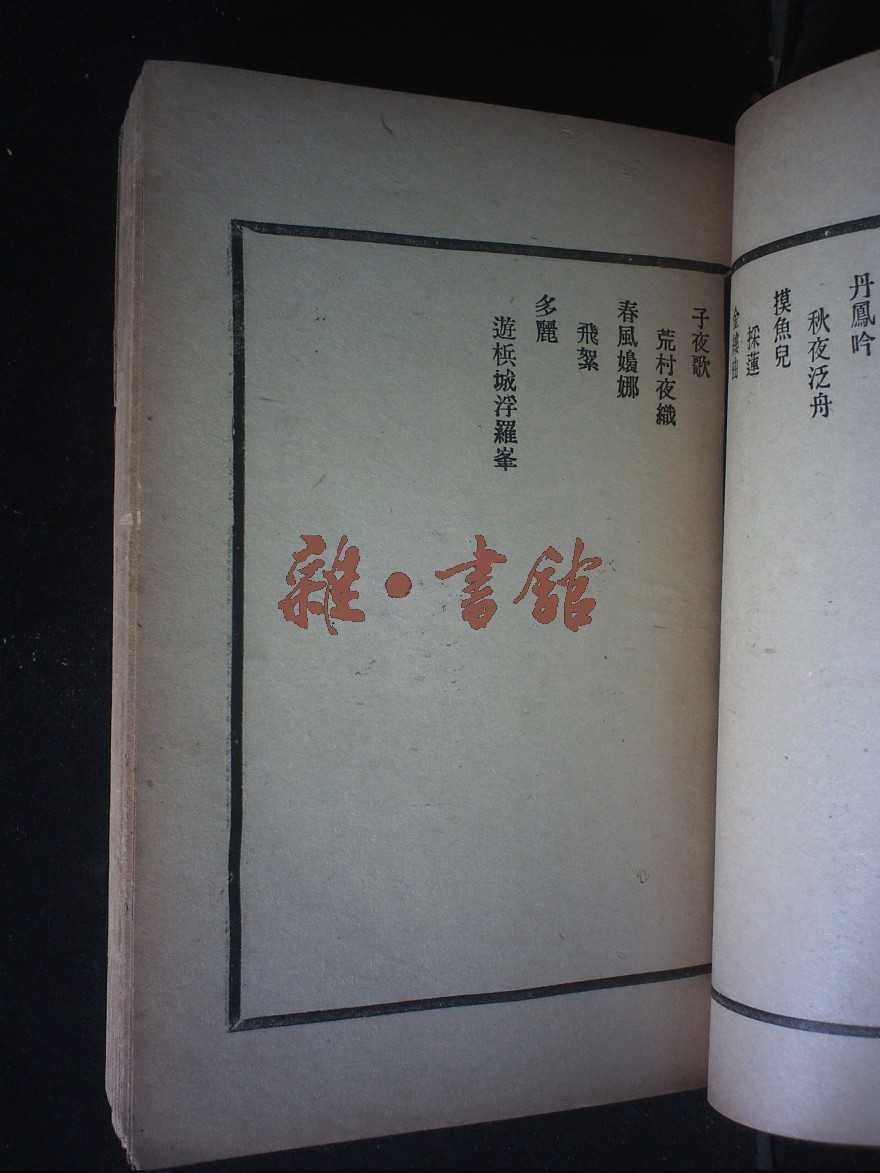 丹鳳吟
秋夜泛舟
摸魚兒
採蓮
金縷曲
子夜歌
荒村夜織
春風嬝娜
飛絮
多麗
遊梹城浮羅峯
雜·書館